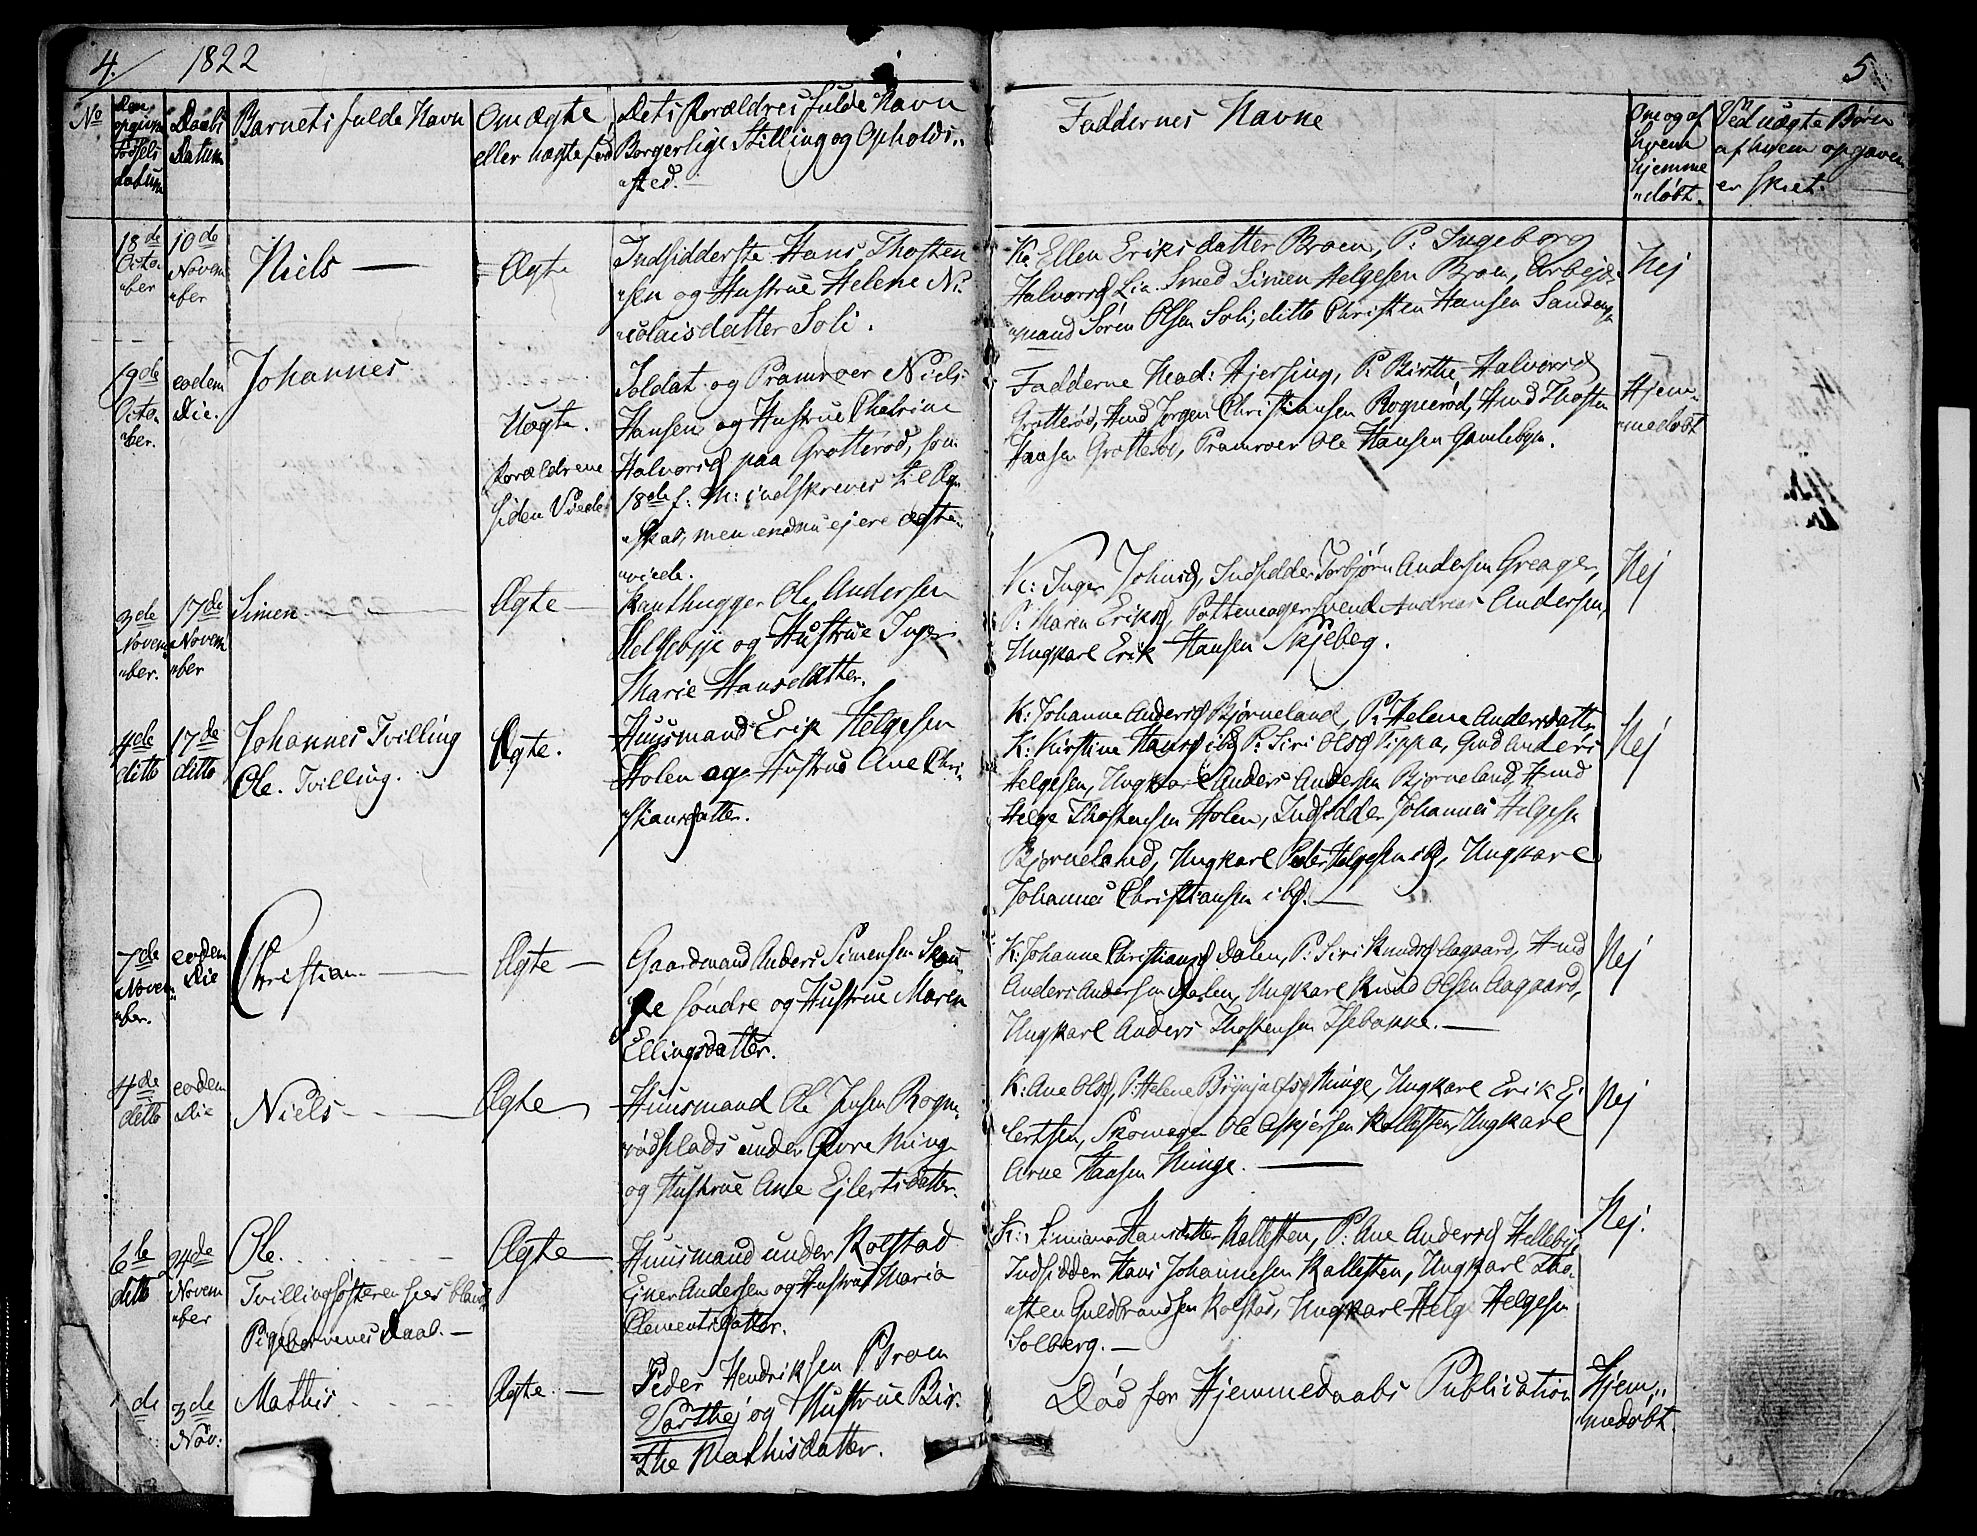 4. 1822
5
No Den opgivne Fødsels datum
Daabs Datum
Barnets fulde Navn
Om ægte eller uægte fød
Dets Forældres fulde Navn
Borgerlige Stilling og Opholds„
„sted.
Faddernes Navne
Om og af hvem hjemme„døbt.
Ved uægte Børn af hvem opgaven er skeet.
18de Octo„ber
10de Novem„ber
Niels
Ægte
Indsidderste Hans Thosten
„sen og Hustrue Helene Ni„
„colaisdatter Soli.
K: Ellen Eriksdatter Broen, P: Ingeborg
Halvorsd Lia. Smed Simen Helgesen Broen, Arbejds
„mand Søren Olsen Soli, ditto Christen Hansen
Nej
19de Octo„ber.
eodem Die.
Johannes
Uægte.
Forældrene
siden Viede
Soldat og Pramroer Niels
Hansen og Hustrue Chatrine
Halvorsd paa Grotterød, som
18de f: M: indskreves til Æg„
„skab, men endnu ej ere ægte„
„viede.
Fadderne Mad: Hjersing, P. Birthe Halvorsd
Grotterød, Hmd Jørgen Christiansen Rognerød, Hmd Thosten
Hansen Grotterød, Pramroer Ole Hansen Gamlebyn.
Hjem„
„medøbt
3de Novem„ber.
17de Novem„ber
Simen
Ægte
Kanthugger Ole Andersen
Hellebye og Hustrue Inger
Marie Hansdatter.
K: Inger Johnsd, Indsidder Torbjørn Andersen Greager,
P: Maren Eriksd, Pottemagersvend Andreas Andersen,
Ungkarl Erik Hansen Skjeberg.
Nej
4de ditto
17de ditto
Johannes Tvilling
Ole. Tvilling.
Ægte.
Huusmand Erik Helgesen
Holen og Hustrue Ane Chri„
„stiansdatter.
K: Johanne Andersd Bjørneland, P: Helene Andersdatter
K: Kirstine Hansd ibd P: Siri Olsd Tippa, Gmd Anders
Helgesen, Ungkarl Anders Andersen Bjørneland, Hmd
Helge Thostensen Holen, Indsidder Johannes Helgesen
Bjørneland, Ungkarl Peder Helgesen ibd, Ungkarl
Johannes Christiansen ibd.
Nej
7de Novem„ber.
eodem Die
Christian
Ægte
Gaardmand Anders Simensen
søndre og Hustrue Maren
Ellingsdatter.
K: Johanne Christiansd Dalen, P: Siri Knudsd Aagaard, Hmd
Anders Andersen Dalen, Ungkarl Knud Olsen Aagaard,
Ungkarl Anders Thostensen Isebakke.
Nej
4de ditto
eodem Die
Niels
Ægte
Huusmand Ole Jensen Rogne„
„rødplads under Øvre Ninge
og Hustrue Ane Ejlertsdatter.
K: Ane Olsd, P: Helene Brynjulfsd Ninge, Ungkarl Erik Ej„
„lertsen, Skomager Ole Askjersen Kallesten, Ungkarl
Arne Hansen Ninge.
Nej
6te ditto
24de Novem„ber
Ole.
Tvillingsøsteren sees blandt
Pigebørnenes Daab.
Ægte
Huusmand under Kolstad
Einer Andersen og Hustrue Maria
Clementsdatter.
K: Simiane Hansdatter Kallesten, P: Ane Andersd Hellebye,
Indsidder Hans Johannesen Kallesten, Ungkarl Tho„
„sten Guldbrandsen Kolstad, Ungkarl Helge Helgesen
Solberg.
Nej.
de
3de Nov:
Mathis
Ægte.
Peder Hendriksen Broen
og Hustrue Bir„
the Mathisdatter.
Død før Hjemmedaabs Publication
Hjem„
„medøbt.